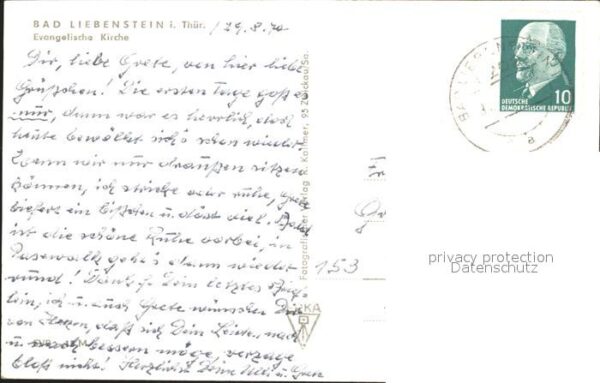 BAD LIEBENSTEIN i. Thür. 29.8.70
Evangelische Kirche
Dir, liebe Grete, von hier liebe
Grüßchen! Die ersten Tage goß es
nur, dann war es herrlich, doch
heute bewölkt sich's schon wieder.
Wenn wir nur draußen sitzen
können, ich stricke oder ruhe, Grete
ein bißchen u. döst viel. Bald
ist die schöne Ruhe vorbei, in
Pasewalk geht's dann wieder
rund! Dank f. Dein letztes Brief-
lein, ich u. auch Grete wünschen Dir
von Herzen, daß sich Dein Leiden noch
bessern möge, verzage
bloß nicht! Herzlichst Deine u.
Fotografischer Verlag K. Kallmer, 95 Zwickau/Sa.
153
DEUTSCHE
DEMOKRATISCHE REPUBLIK
10
BAD LIEBENSTEIN
a
privacy protection
Datenschutz